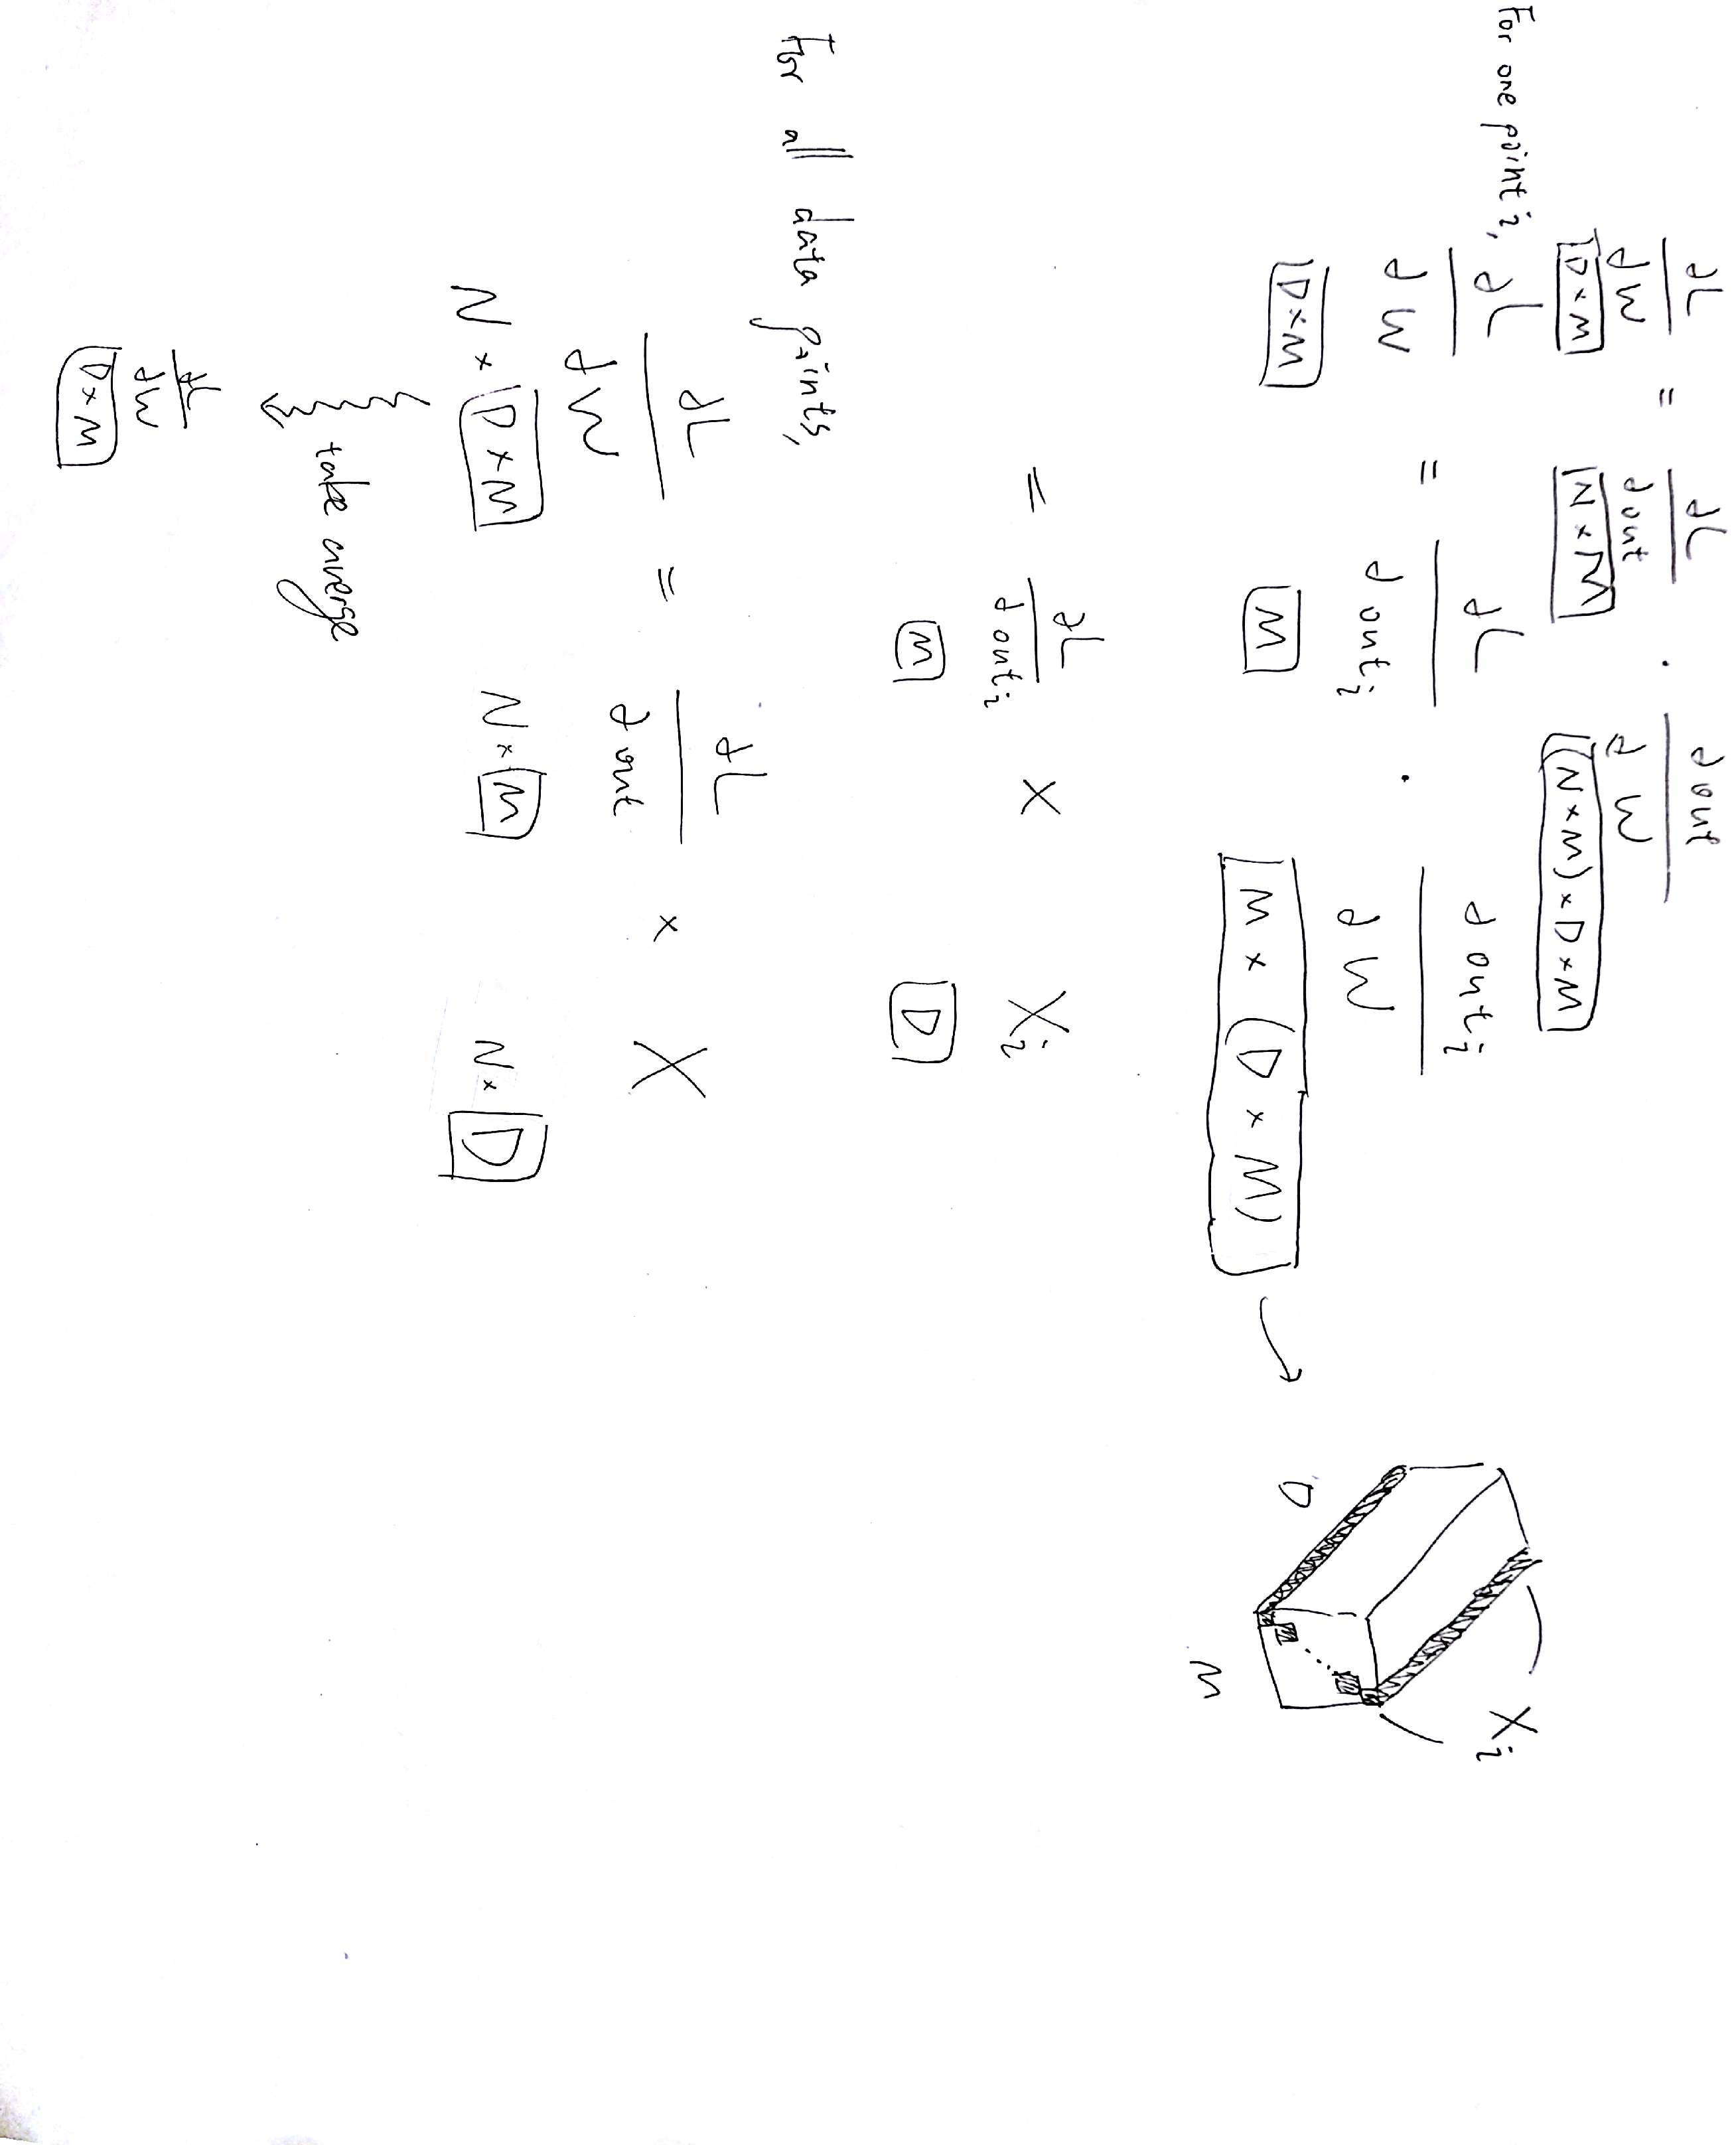 ∂L/∂W = ∂L/∂out · ∂out/∂W
D×M N×M (N×M)×D×M
For one point i,
∂L/∂W = ∂L/∂out_i · ∂out_i/∂W
D×M M M×(D×M) → D M X_i
= ∂L/∂out_i × X_i
M D
For all data points,
∂L/∂W = ∂L/∂out × X
N×D×M N×M N×D
take averge
∂L/∂W
D×M